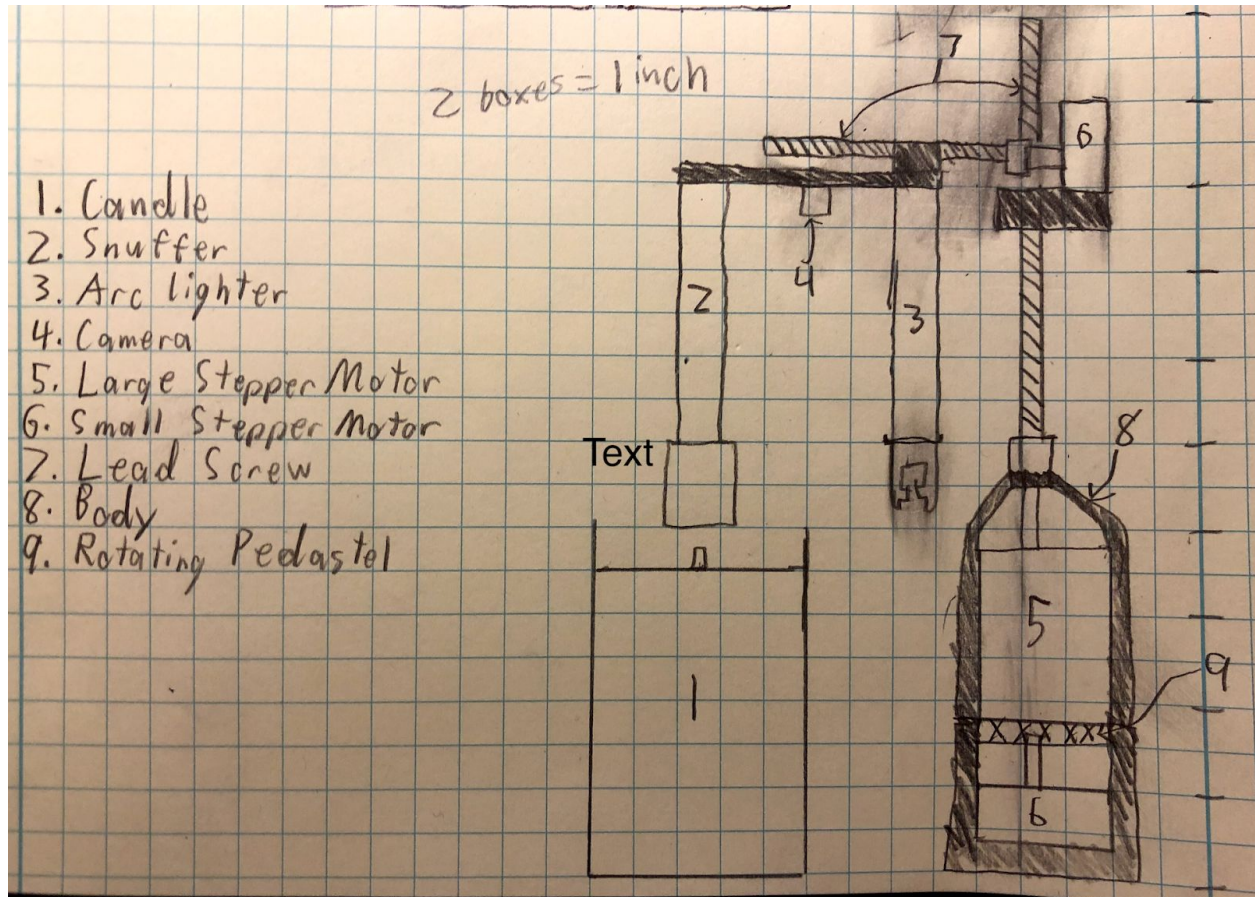 2 boxes = 1 inch
7
6
1. Candle
2. Snuffer
3. Arc lighter
4. Camera
5. Large Stepper Motor
6. Small Stepper Motor
7. Lead Screw
8. Body
9. Rotating Pedastel
2
4
3
8
Text
5
9
1
6